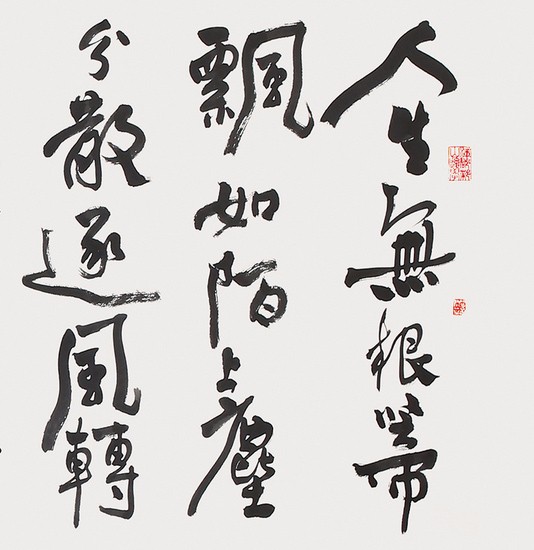 人生無根蒂
飄如陌上塵
分散逐風轉